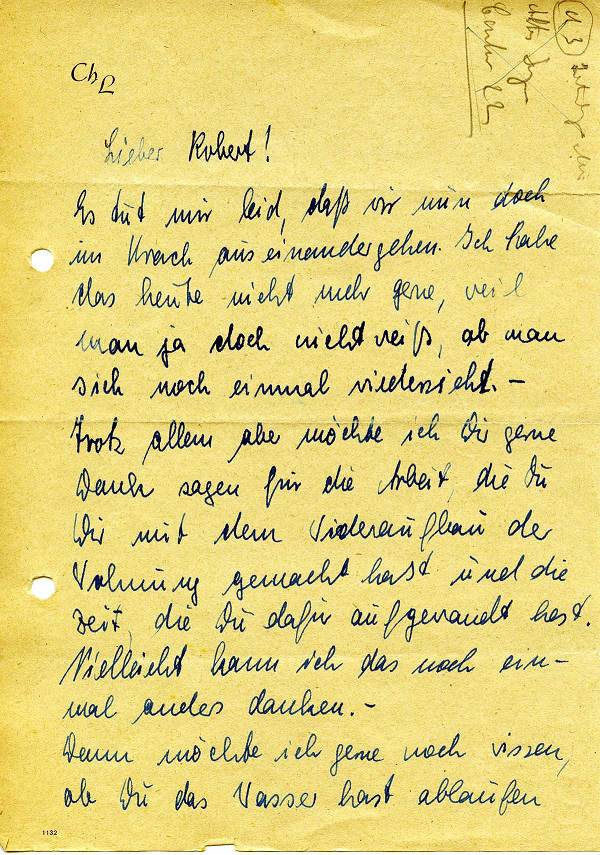 Ch
L
Lieber Robert!
Es tut mir leid, daß wir nun doch
im Krach auseinandergehen. Ich habe
das heute nicht mehr gerne, weil
man ja doch nicht weiß, ob man
sich noch einmal wiedersieht. –
Trotz allem aber möchte ich Dir gerne
Dank sagen für die Arbeit, die Du
Dir mit dem Wideraufbau der
Wohnung gemacht hast und die
Zeit, die Du dafür aufgewandt hast.
Vielleicht kann ich das noch ein-
mal anders danken. –
Dann möchte ich gerne noch wissen,
ob Du das Wasser hast ablaufen
1132